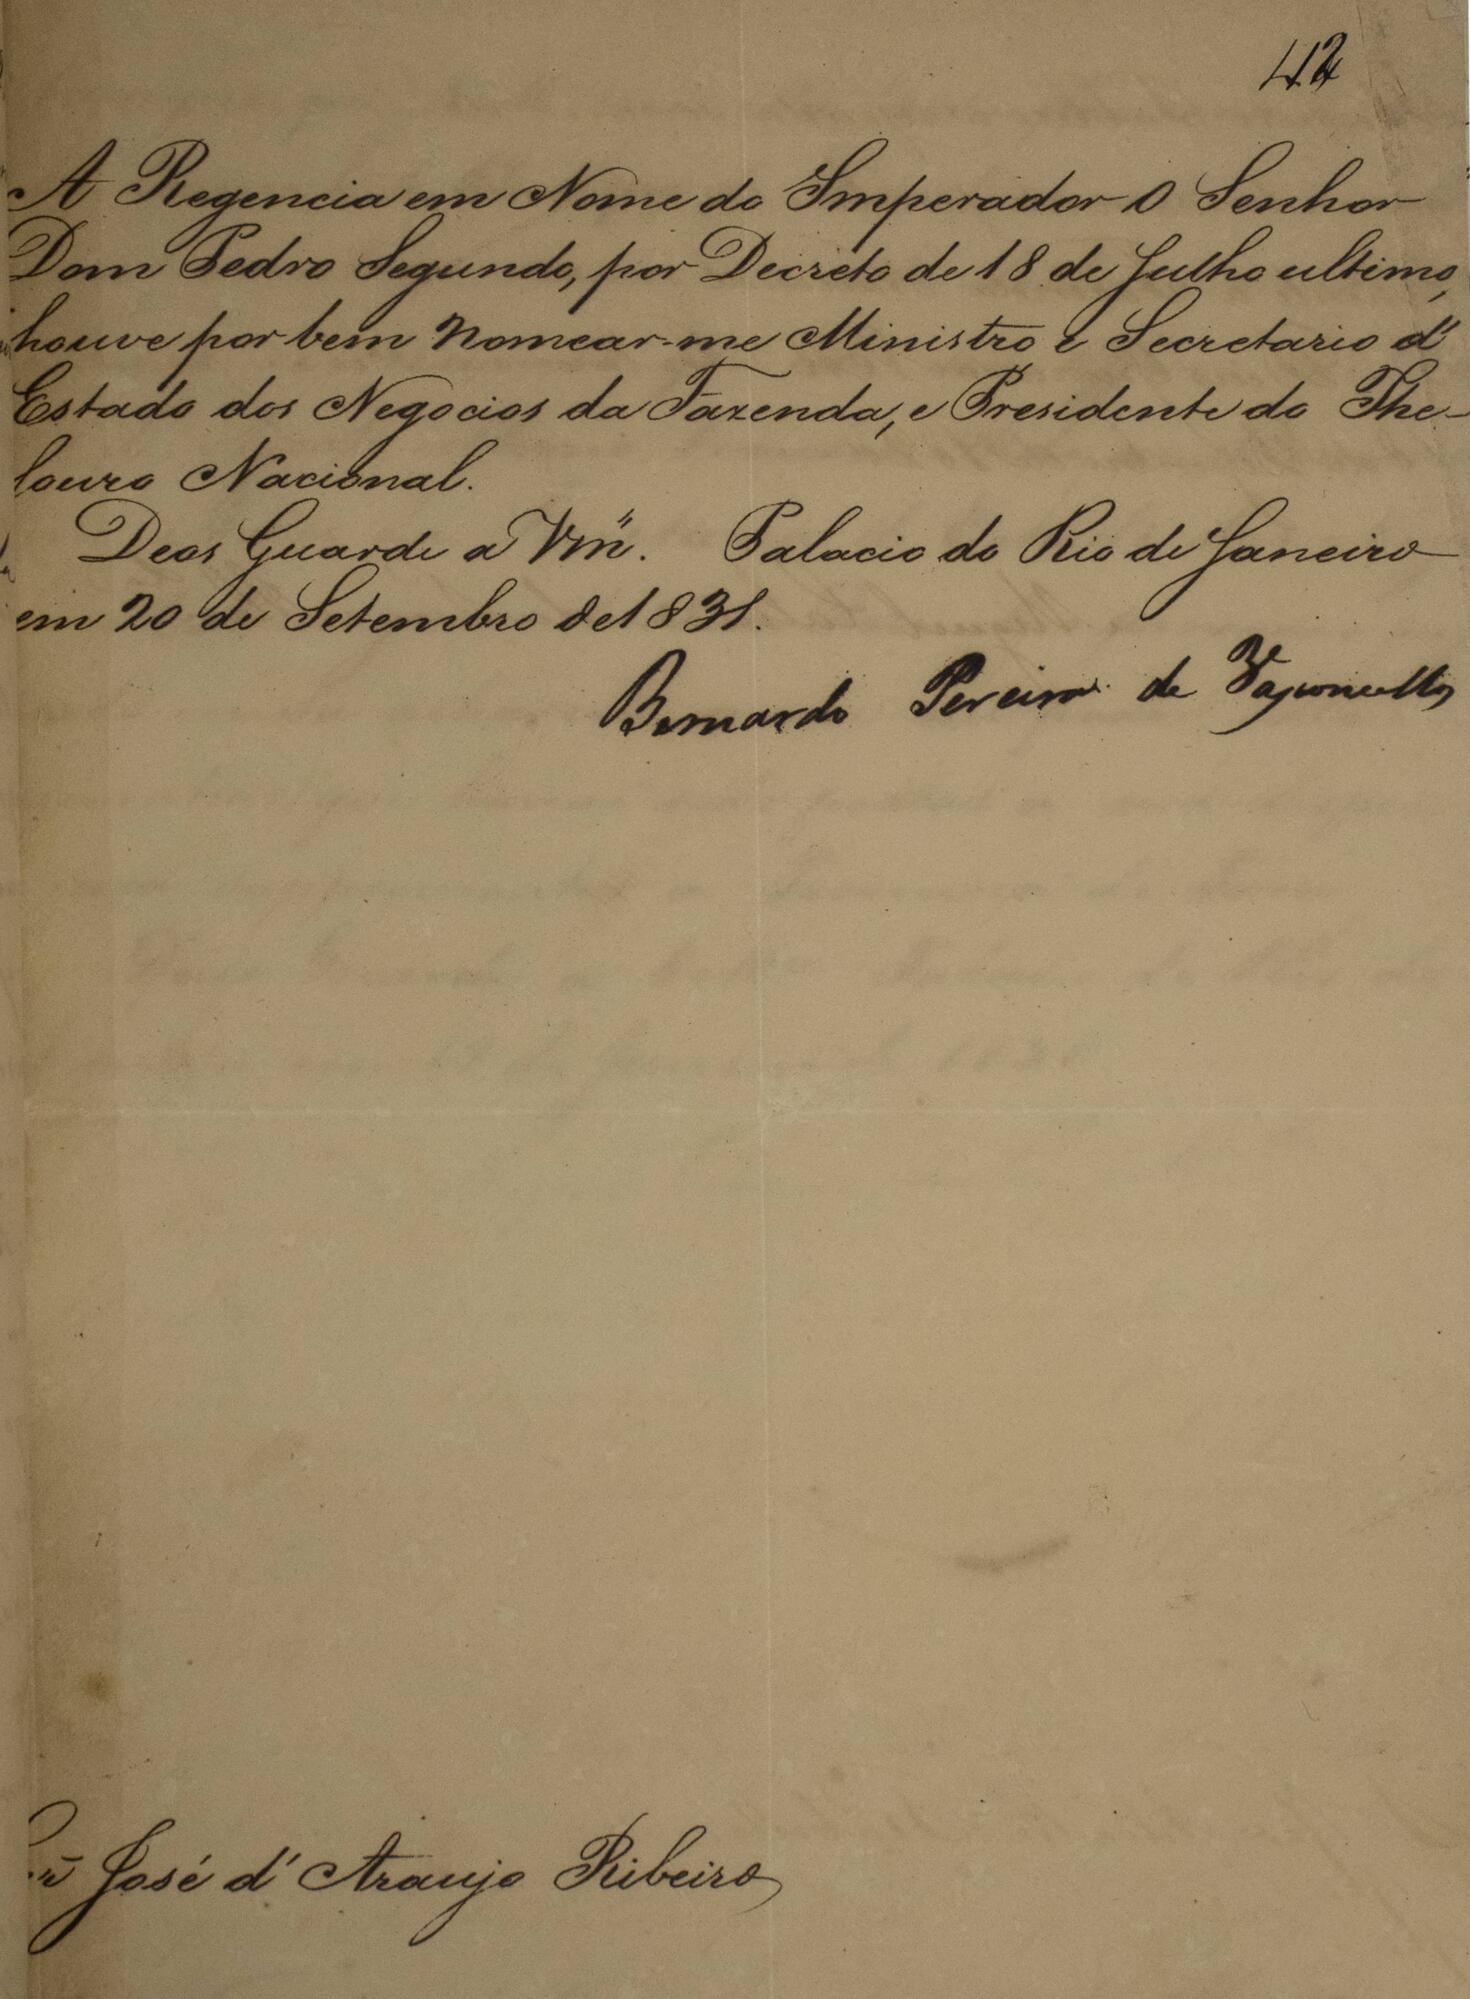 42
A Regencia em Nome do Imperador O Senhor
Dom Pedro Segundo, por Decreto de 18 de Julho ultimo,
houve por bem nomear-me Ministro e Secretario d'
Estado dos Negocios da Fazenda, e Presidente do The-
souro Nacional.
Deos Guarde a Vm.ce Palacio do Rio de Janeiro
em 20 de Setembro de 1831.
Bernardo Pereira de Vasconcellos
José d' Araujo Ribeiro